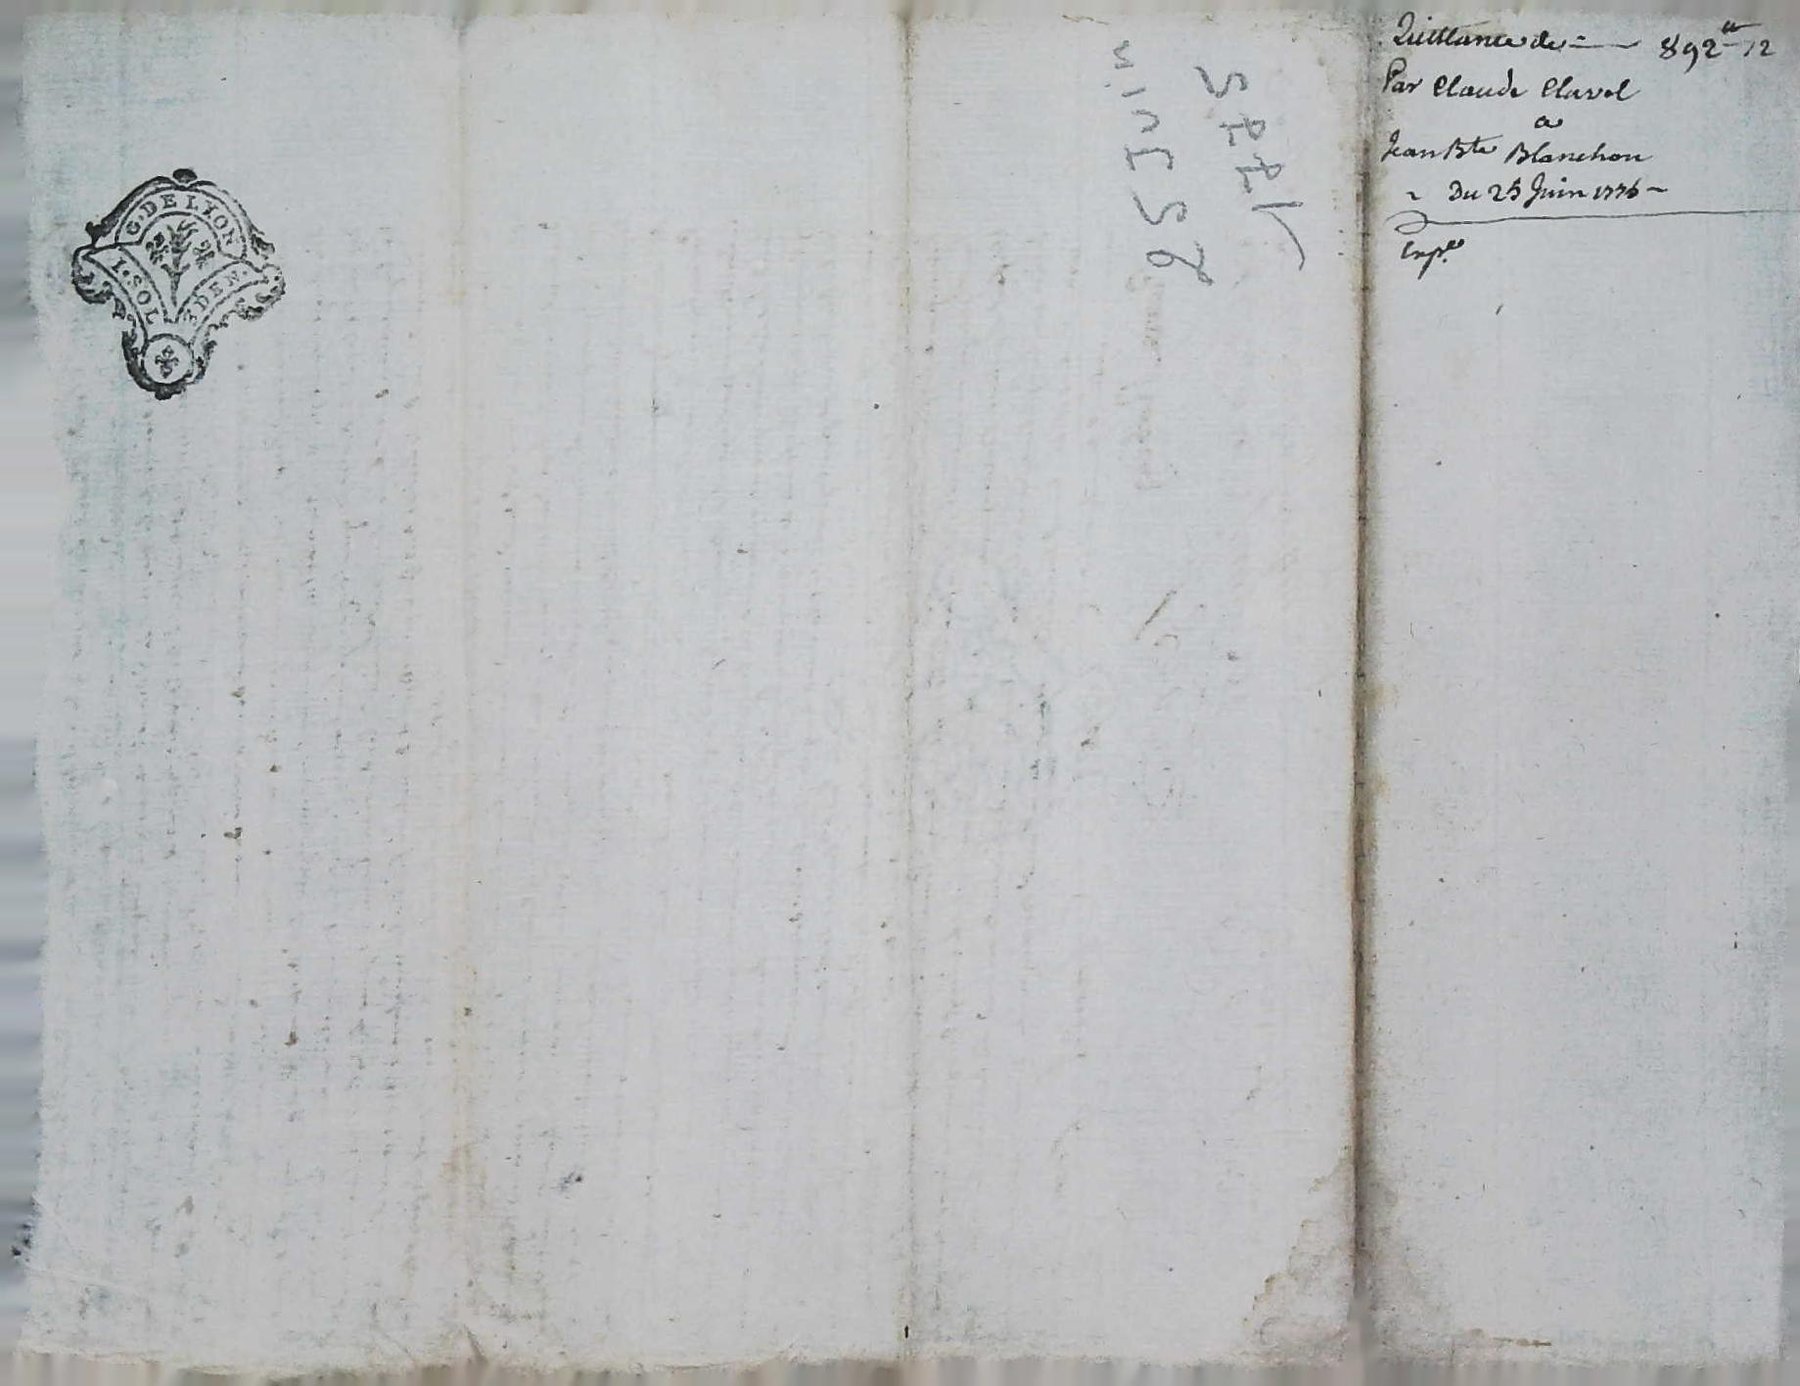 Quittance de 892 tt 12
Par Claude Clavel
a
Jean Bte Blanchon
Du 25 Juin 1775
Exp.
25 Juin
1775
G·DE LYON
I·SOL DEN·